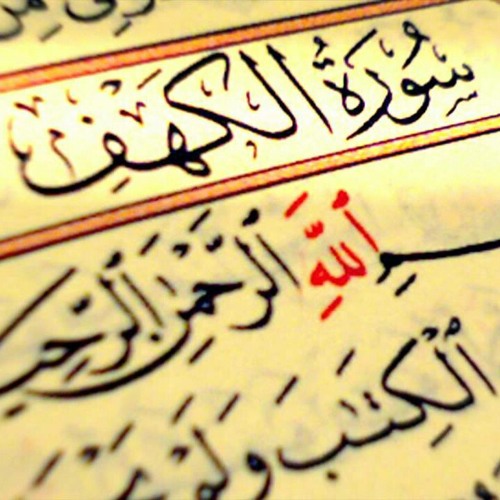 سُورَةُ الكَهْفِ
سِمِ ٱللَّهِ ٱلرَّحْمَٰنِ ٱلرَّحِيـ
ٱلْكِتَٰبَ وَلَمْ